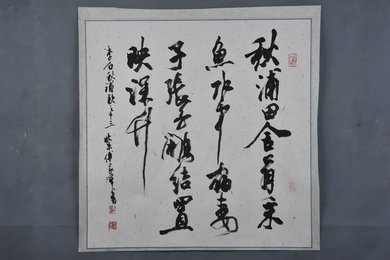 秋浦田舍翁采
魚水中宿妻
子張白鷴結罝
映深竹
李白秋浦歌